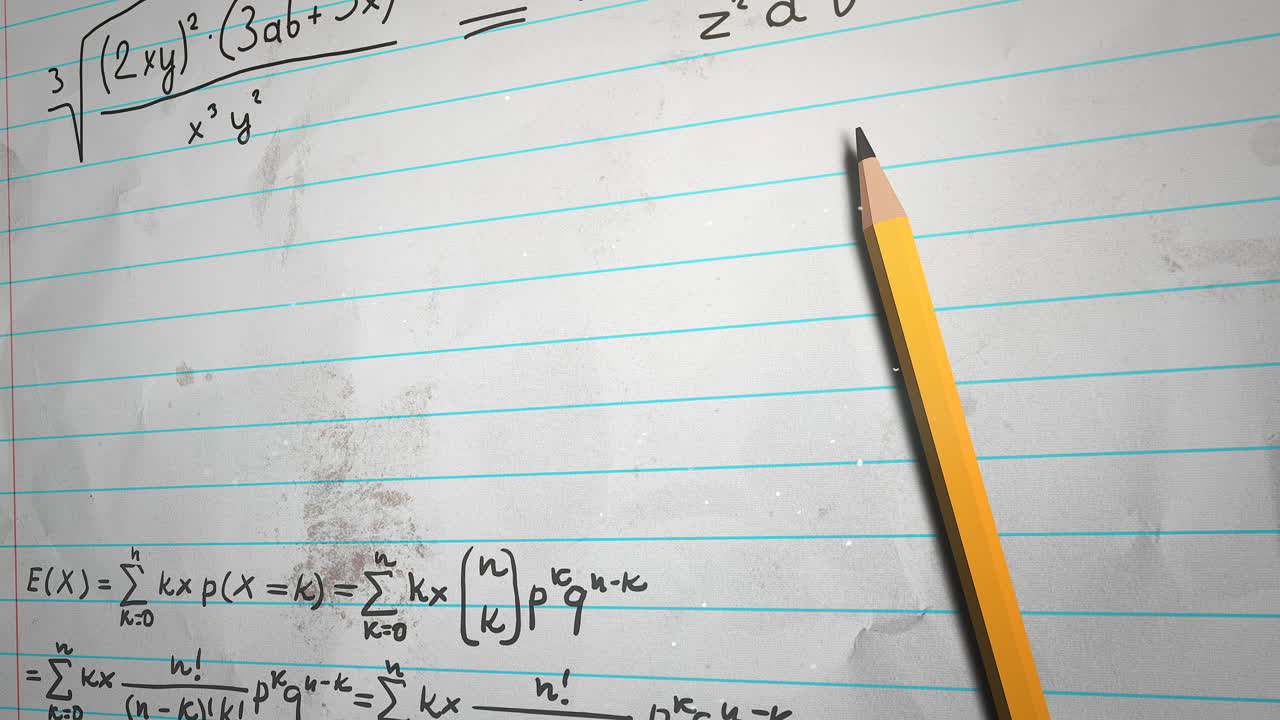 ∛((2xy)²·(3ab+5x)/(x³y²)) = z² a
E(X) = ∑ₖ₌₀ⁿ kx p(X = k) = ∑ₖ₌₀ⁿ kx (n k) pᵏqⁿ⁻ᵏ
= ∑ₖ₌₀ⁿ kx n!/((n-k)!k!) pᵏqⁿ⁻ᵏ = ∑ⁿ kx n! pᵏqⁿ⁻ᵏ